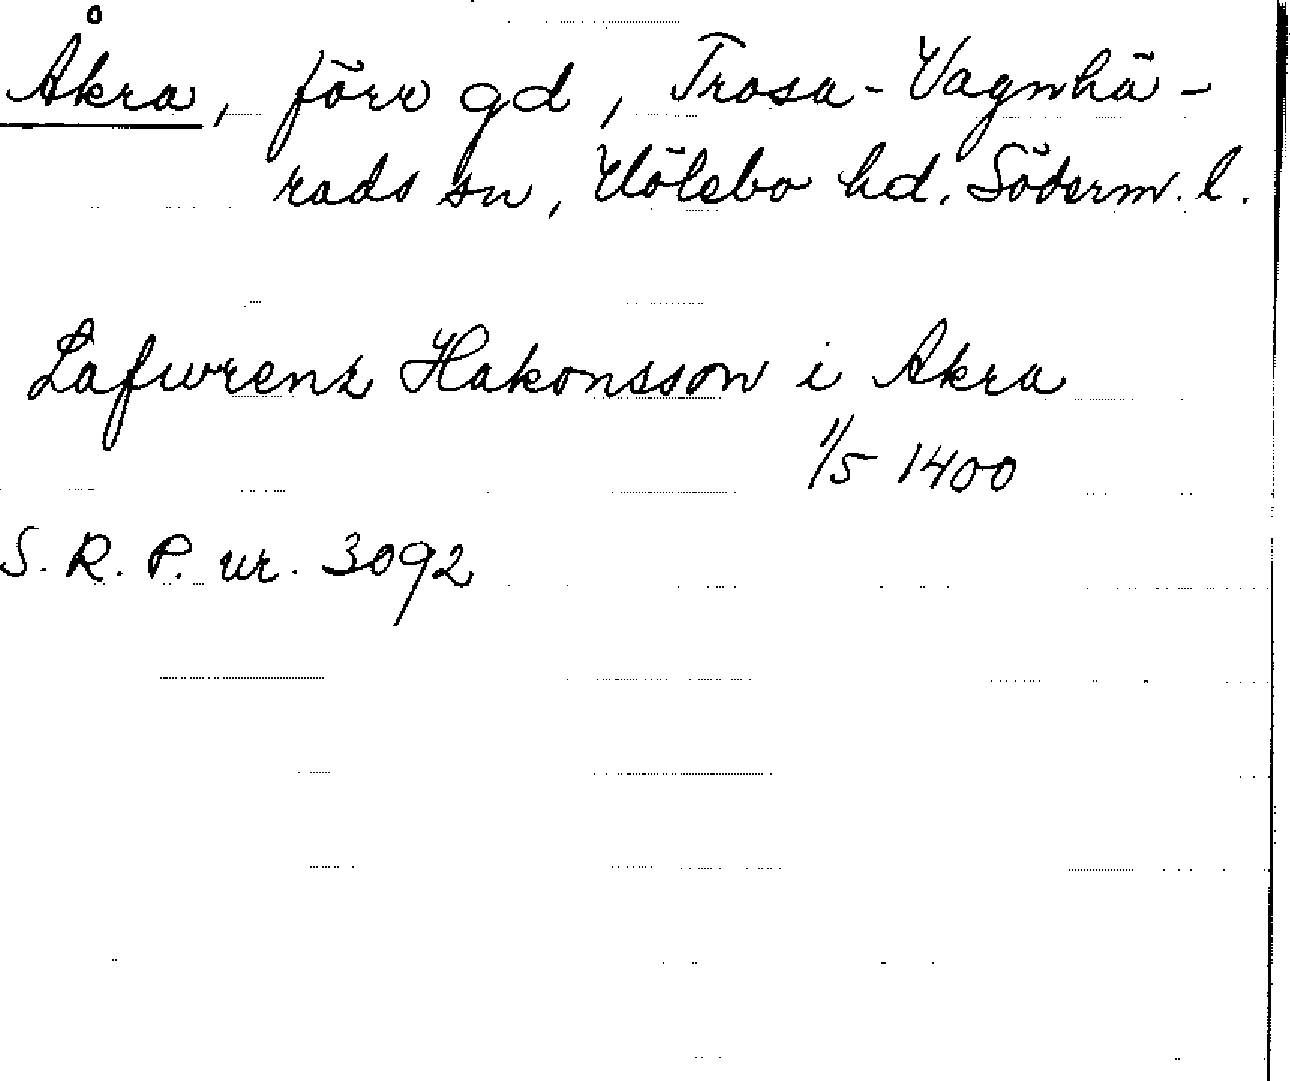 Åkra, förr gd, Trosa-Vagnhä-
rads sn, Hölebo hd. Söderm. l.
Lafwrenz Hakonsson i Akra
1/5 1400
S. R. P. nr. 3092